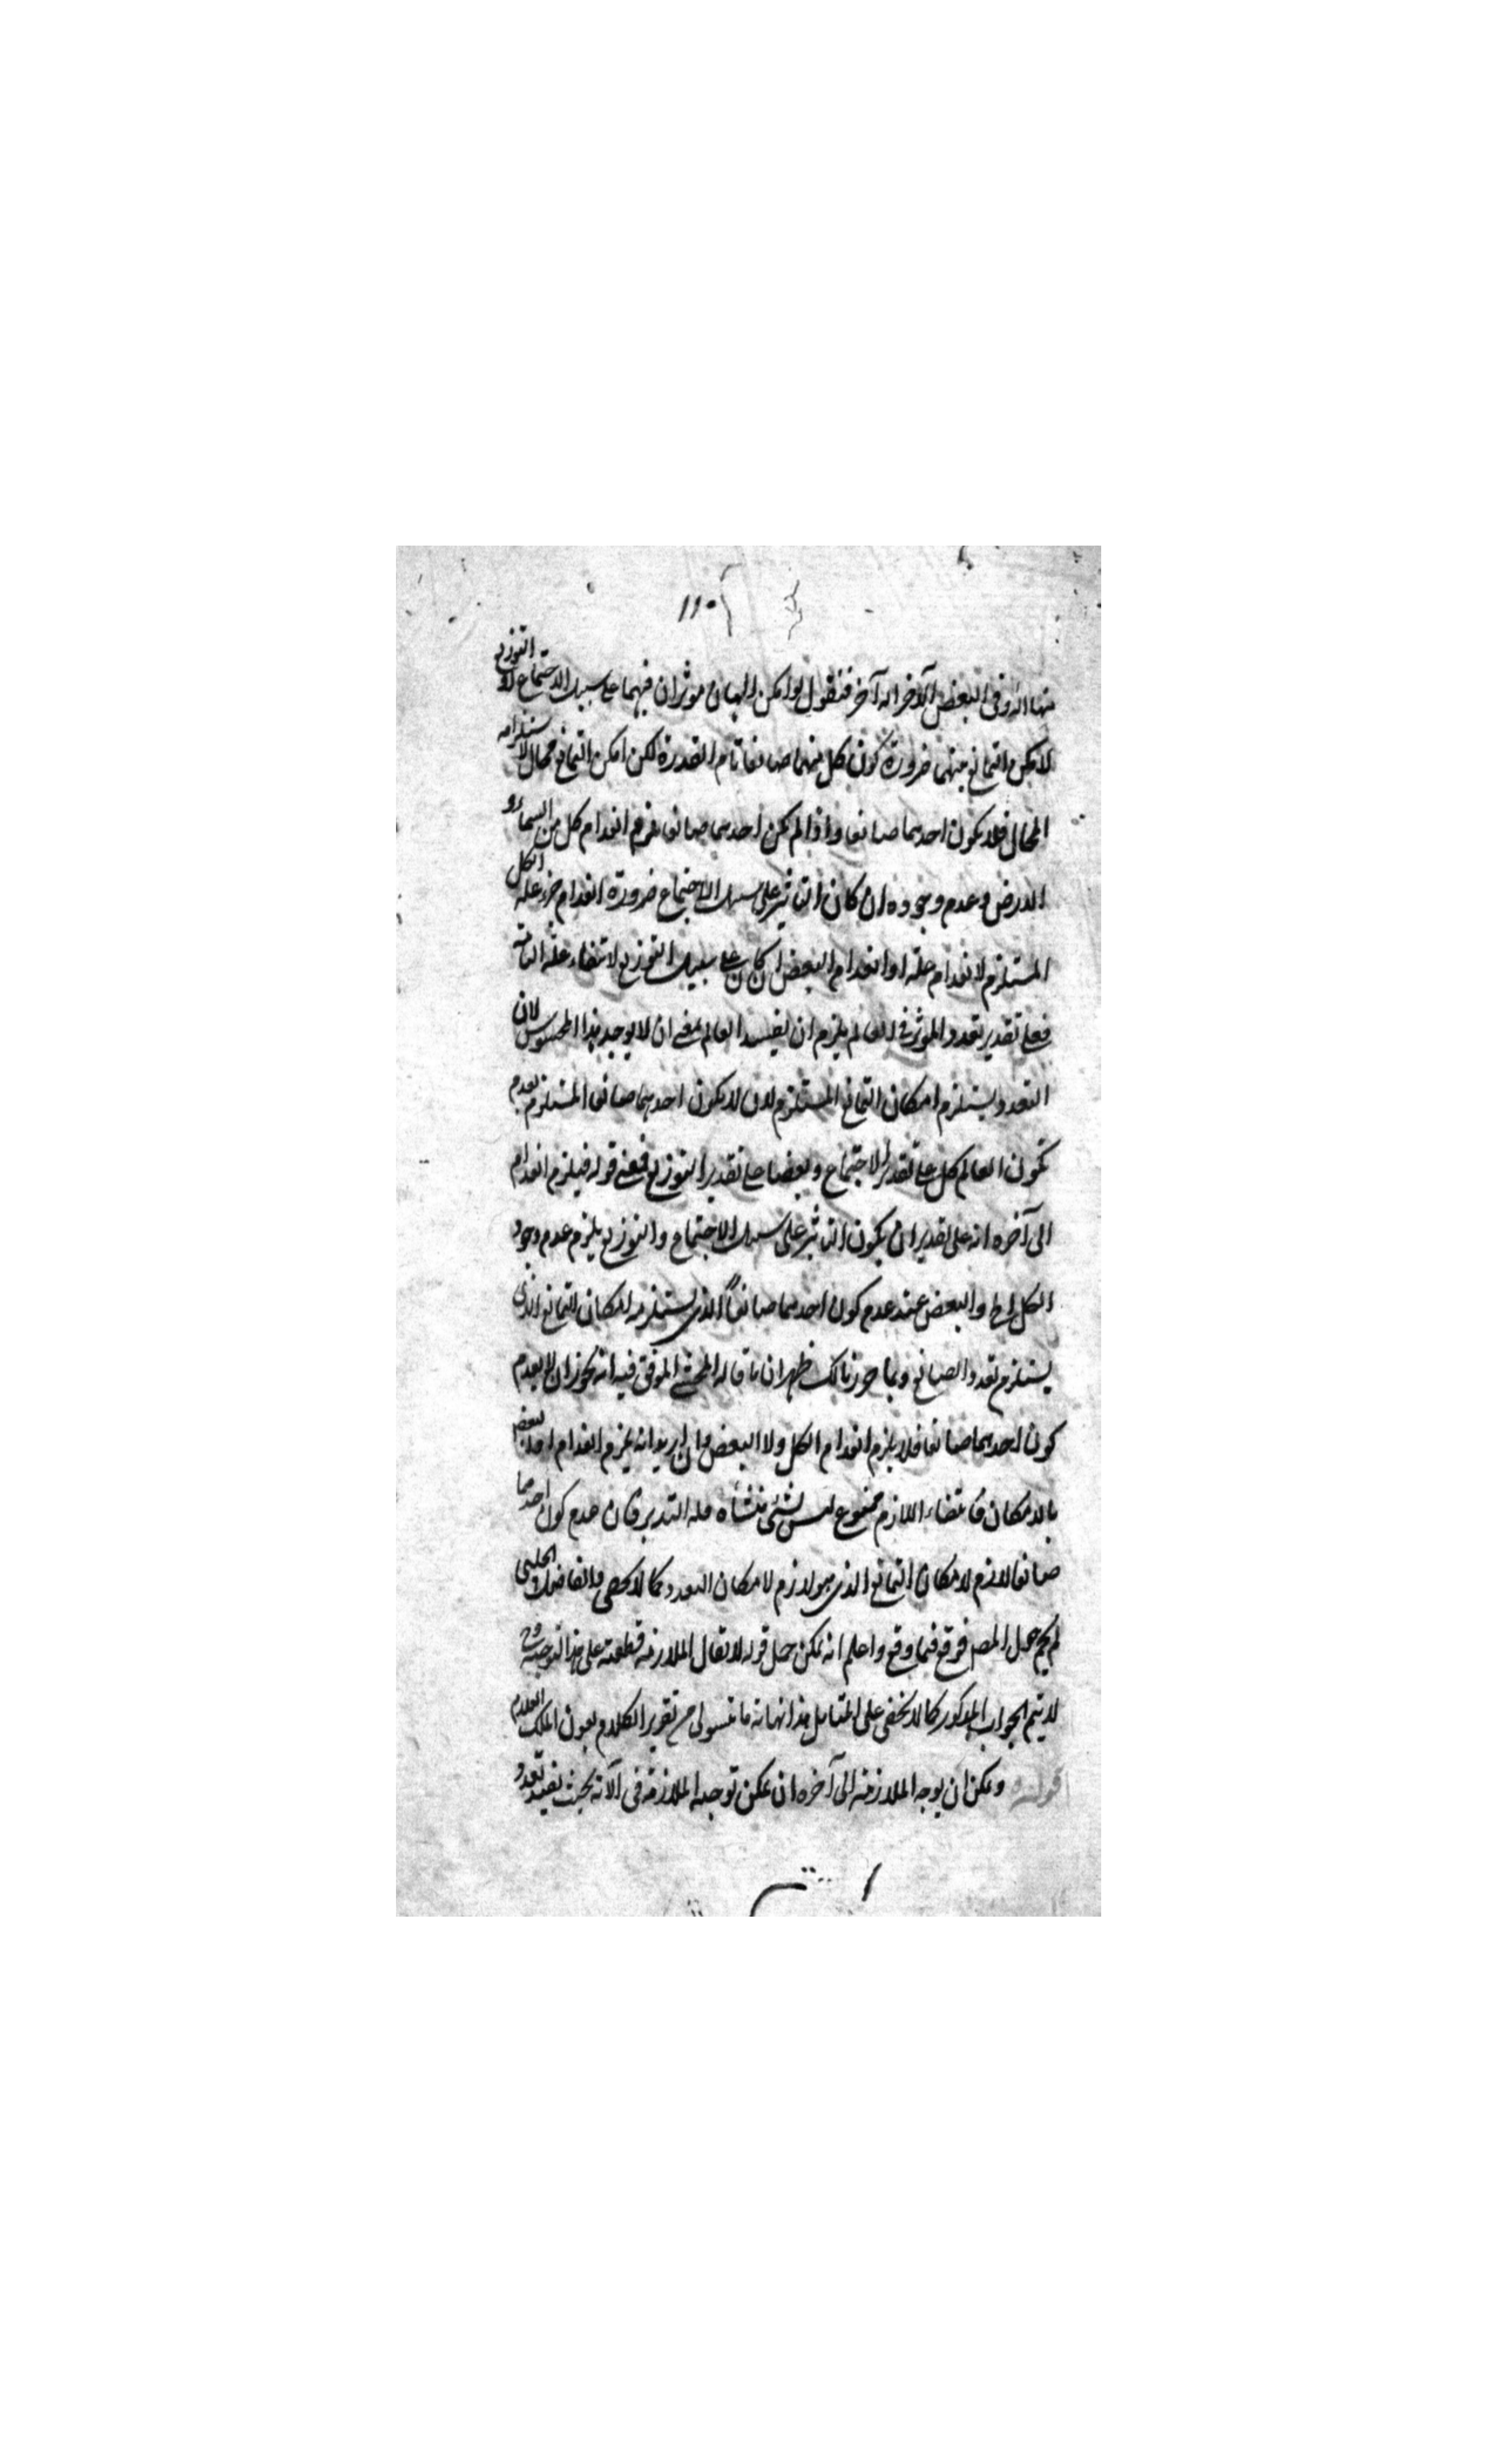 ١١٠
منها اله وفى البعض الآخر اله آخر فنقول لو امكن الهان موثران فيهما على سبيل الاجتماع او التوزيع
لامكن التمانع بينهما ضرورة كون كل منهما صانعا تام القدرة لكن امكن التمانع محال لاستلزامه
المحال فلا يكون احدهما صانعا واذا لم يكن احدهما صانعا يلزم انعدام كل من السماء و
الارض وعدم وجوده ان كان التاثير على سبيل الاجتماع ضرورة انعدام جزء علة الكل
المستلزم لانعدام علته او انعدام البعض ان كان على سبيل التوزيع لانتفاء علته التامة
فعلى تقدير تعدد الموثر فى العالم يلزم ان يفسد العالم بمعنى ان لا يوجد هذا المحسوس لان
التعدد يستلزم امكان التمانع المستلزم لان لا يكون احدهما صانعا المستلزم لعدم
تكون العالم كل على تقدير الاجتماع وبعضا على تقدير التوزيع فمعنى قوله فيلزم انعدام
الى آخره انه على تقدير ان يكون التاثير على سبيل الاجتماع والتوزيع يلزم عدم وجود
الكل او البعض عند عدم كون احدهما صانعاً الذى يستلزمه امكان التمانع الذى
يستلزم تعدد الصانع وبما حررنا لك ظهر ان ما قاله المحشى الموفق فيه انه يجوز ان لا يعدم
كون احدهما صانعا فلا يلزم انعدام الكل ولا البعض وان اريد انه يلزم انعدام البعض
بالامكان فانتفاء اللازم ممنوع ليس بشئ منشأه قلة التدبر فان عدم كون احدهما
صانعا لازم لامكان التمانع الذى هو لازم لامكان التعدد كما لا يخفى والفاضل الجلبى
لم يحم حول المص فوقع فيما وقع واعلم انه يمكن حمل قوله لا يقال الملازمة قطعية على هذا التوجيه وح
لا يتم الجواب المذكور كما لا يخفى على المتامل هذا نهاية ما تيسر لى من تقرير الكلام بعون الملك العلام
قوله ويمكن ان يوجه الملازمة الى آخره ان يمكن توجيه الملازمة فى الآية بحيث يفيد تعدد